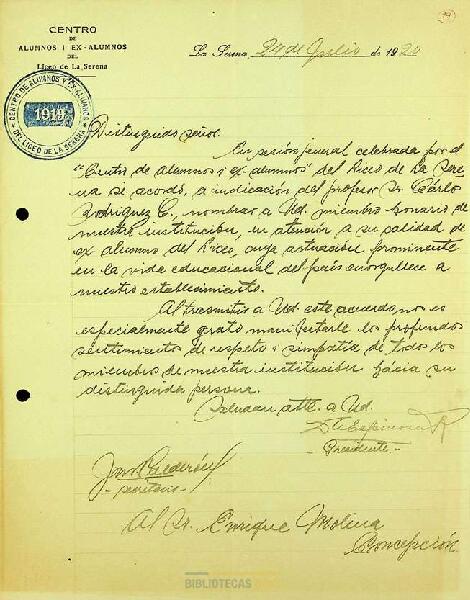 CENTRO
DE
ALUMNOS I EX-ALUMNOS
DEL
LICEO DE LA SERENA
La Serena 24 de Julio de 1920
CENTRO DE ALUMNOS Y EX-ALUMNOS
1919
DEL LICEO DE LA SERENA
Distinguido señor:
En sesión jeneral celebrada por el
"Centro de alumnos i ex-alumnos" del Liceo de La Sere
na se acordó, a indicación del profesor Sr. Carlos
Rodríguez C., nombrar a Ud. miembro honorario de
nuestra institución, en atención a su calidad de
ex alumno del Liceo, cuya actuación prominente
en la vida educacional del país enorgullece a
nuestro establecimiento.
Al trasmitir a Ud. este acuerdo, nos es
especialmente grato manifestarle los profundos
sentimientos de respeto i simpatía de todos los
miembros de nuestra institución hacia su
distinguida persona.
Saludan atte. a Ud.
Espinosa R
Presidente
Calderón
secretario
Al Sr. Enrique Molina
Concepción.
BIBLIOTECAS